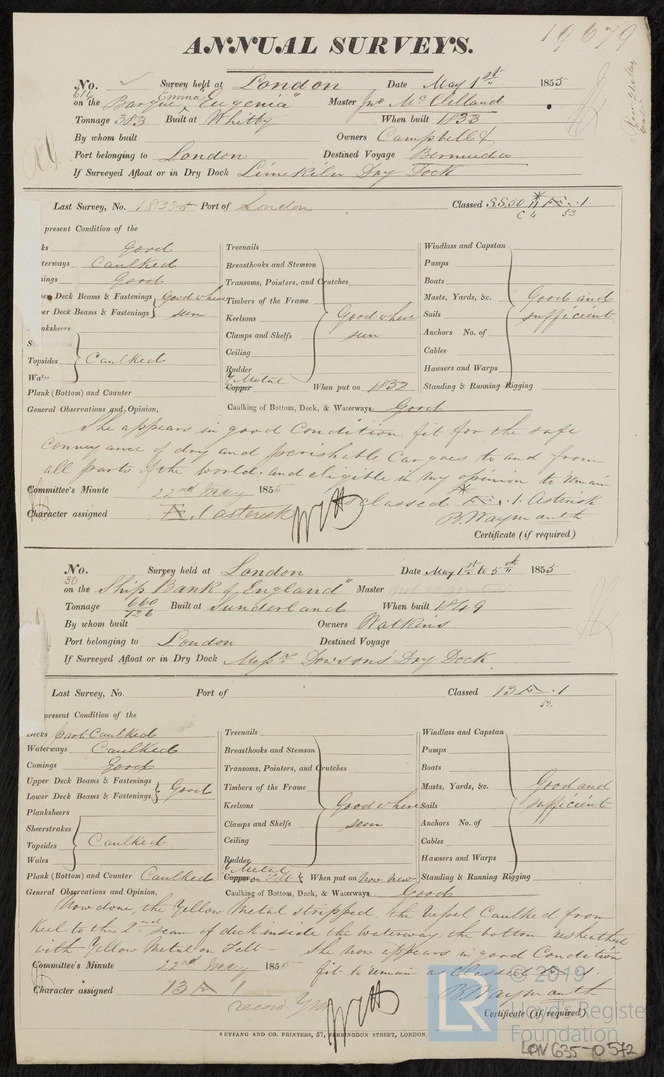 19679
ANNUAL SURVEYS.
No. Survey held at London Date May 1st 1855
614
on the Barque "Emma Eugenia" Master Jno McClelland
Tonnage 383 Built at Whitby When built 1833
By whom built Owners Campbell &
Port belonging to London Destined Voyage Bermuda
If Surveyed Afloat or in Dry Dock Limekiln Dry Dock
Last Survey, No. Port of London Classed
present Condition of the
ks Good
terways Caulked
ings Good
er Deck Beams & Fastenings
er Deck Beams & Fastenings } Good where seen
anksheers
S
Topsides } Caulked
Wal
Plank (Bottom) and Counter
Treenails
Breasthooks and Stemson
Transoms, Pointers, and Crutches
Timbers of the Frame
Keelsons } Good where seen
Clamps and Shelfs
Ceiling
Rudder
Y Metal
Copper When put on 1832
Windlass and Capstan
Pumps
Boats
Masts, Yards, &c. } Good and sufficient
Sails
Anchors No. of
Cables
Hawsers and Warps
Standing & Running Rigging
General Observations and Opinion, Caulking of Bottom, Deck, & Waterways Good
She appears in good Condition, fit for the safe
Conveyance of dry and perishable Cargoes to and from
all parts of the world, and eligible in my opinion to remain
Committee's Minute 22nd May 1855 as classed Æ.1. Asterisk
Character assigned Æ.1 asterisk B. Waymouth
Certificate (if required)
No. Survey held at London Date May 1st to 5th 1855
30
on the Ship "Bank of England" Master
Tonnage 660/726 Built at Sunderland When built 1849
By whom built Owners Watkins
Port belonging to London Destined Voyage
If Surveyed Afloat or in Dry Dock Messrs Dowson's Dry Dock
Last Survey, No. Port of Classed 13 A .1
52
present Condition of the
Decks Part Caulked
Waterways Caulked
Comings Good
Upper Deck Beams & Fastenings
Lower Deck Beams & Fastenings } Good
Planksheers
Sheerstrakes
Topsides } Caulked
Wales
Plank (Bottom) and Counter Caulked
Treenails
Breasthooks and Stemson
Transoms, Pointers, and Crutches
Timbers of the Frame
Keelsons } Good where seen
Clamps and Shelfs
Ceiling
Rudder
Y Metal
Copper on Felt When put on Now New
Windlass and Capstan
Pumps
Boats
Masts, Yards, &c. } Good and sufficient
Sails
Anchors No. of
Cables
Hawsers and Warps
Standing & Running Rigging
General Observations and Opinion, Caulking of Bottom, Deck, & Waterways Good
Now done, the Yellow Metal stripped, the vessel Caulked from
Keel to the 2nd seam of deck inside the waterway, the bottom resheathed
with Yellow Metal on Felt - She now appears in good Condition
Committee's Minute 22nd May 1855 fit to remain as Classed
Character assigned 13 A 1 B. Waymouth
record YM
Certificate (if required)
SEYFANG AND CO. PRINTERS, 57, FARRINGDON STREET, LONDON.
© 2019
LR
Lloyd's Register
Foundation
LON 635-0572